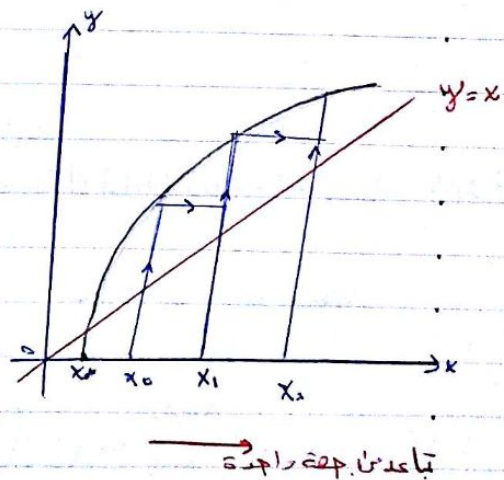 y
y = x
0
x* x₀ x₁ x₂ x
تباعد من جهة واحدة